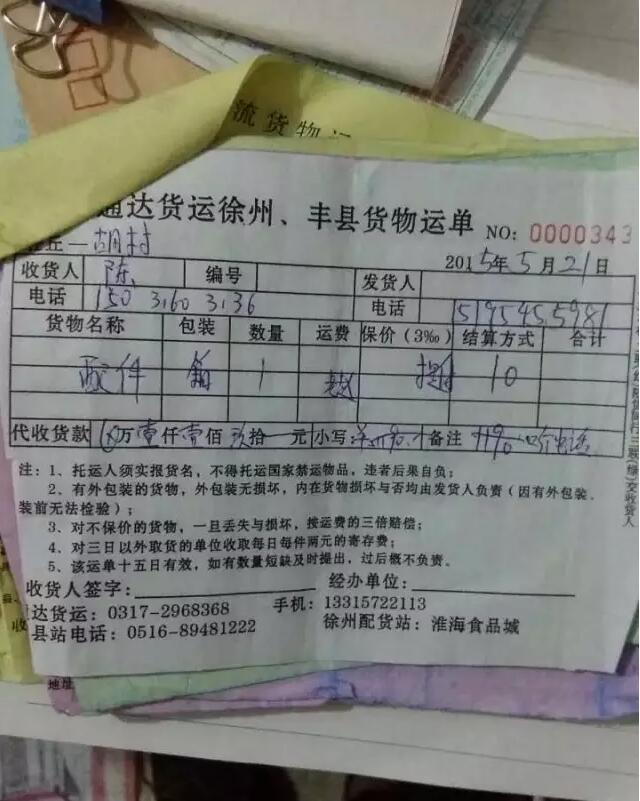 流货物运
通达货运徐州、丰县货物运单 NO: 0000343
任丘—胡村
2015年5月21日
收货人 陈 编号 发货人
电话 150 3160 3136 电话 15195455981
货物名称 包装 数量 运费 保价（3‰） 结算方式 合计
配件 箱 1 提付 10
代收货款 万壹仟壹佰玖拾 元 小写: 备注
注：1、托运人须实报货名，不得托运国家禁运物品，违者后果自负；
2、有外包装的货物，外包装无损坏，内在货物损坏与否均由发货人负责（因有外包装、
装前无法检验）；
3、对不保价的货物，一旦丢失与损坏，按运费的三倍赔偿；
4、对三日以外取货的单位收取每日每件两元的寄存费；
5、该运单十五日有效，如有数量短缺及时提出，过后概不负责。
收货人签字： 经办单位：
达货运：0317-2968368 手机：13315722113
县站电话：0516-89481222 徐州配货站：淮海食品城
地址
交收货人